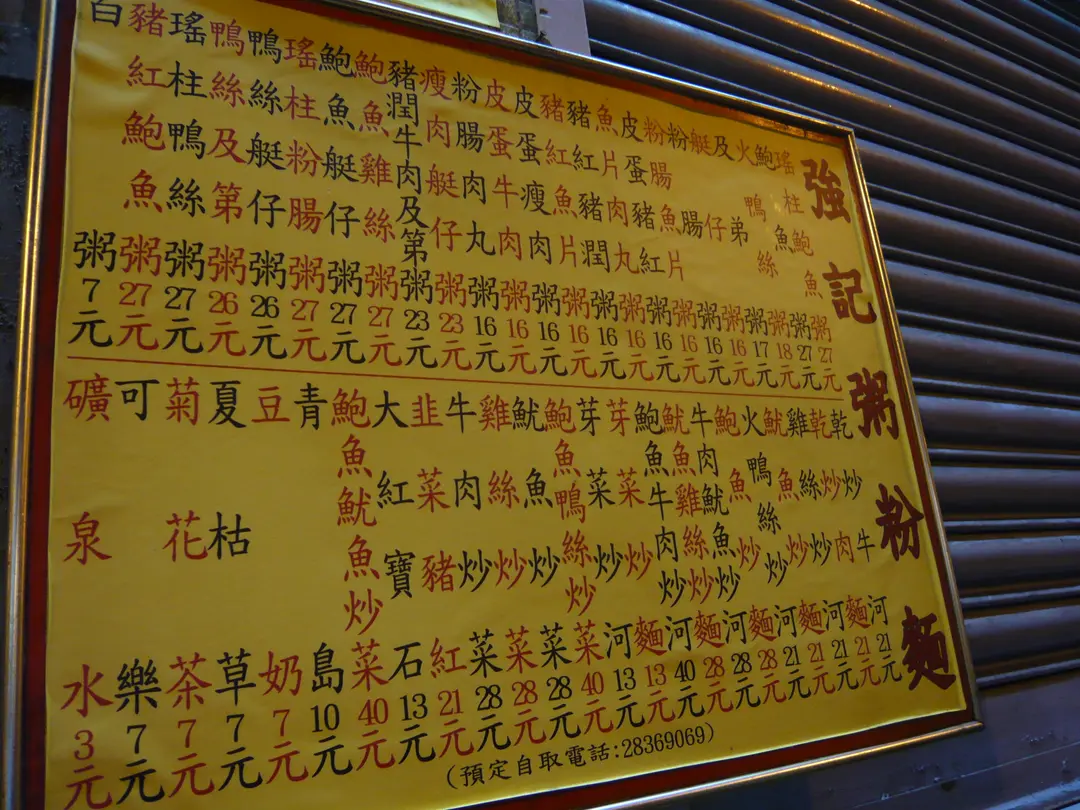 強記粥粉麵
瑤柱鮑魚粥27元
鮑魚粥27元
火鴨絲粥18元
及弟粥17元
艇仔粥16元
粉腸粥16元
粉腸魚片粥16元
皮蛋豬紅粥16元
魚片肉丸粥16元
豬紅豬潤粥16元
豬紅魚片粥16元
皮蛋瘦肉粥16元
皮蛋牛肉粥16元
粉腸肉丸粥16元
瘦肉艇仔粥23元
豬潤牛肉及第粥23元
鮑魚雞絲粥27元
鮑魚艇仔粥27元
瑤柱粉腸粥27元
鴨絲艇仔粥26元
鴨絲及第粥26元
瑤柱鴨絲粥27元
豬紅鮑魚粥27元
白粥7元
乾炒牛河21元
乾炒肉麵21元
雞絲炒河21元
魷魚炒麵21元
火鴨絲炒河21元
鮑魚炒麵28元
牛肉魷魚炒河28元
魷魚雞絲炒麵28元
鮑魚牛肉炒河40元
芽菜炒麵13元
芽菜炒河13元
鮑魚鴨絲炒菜40元
魷魚炒菜28元
雞絲炒菜28元
牛肉炒菜28元
韭菜豬紅21元
大紅寶石13元
鮑魚魷魚炒菜40元
青島10元
豆奶7元
夏枯草7元
菊花茶7元
可樂7元
礦泉水3元
(預定自取電話:28369069)